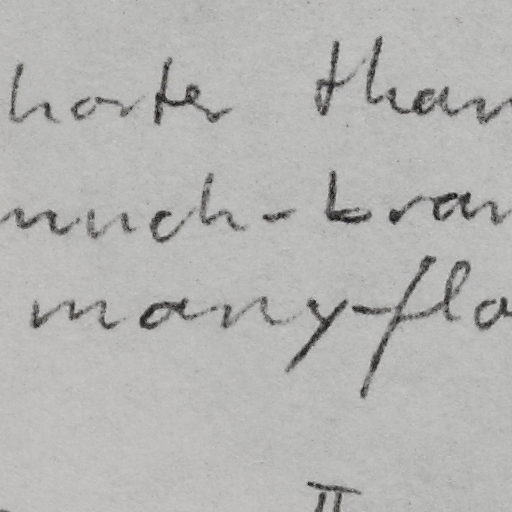 horter than
much-bran
many-flo
II